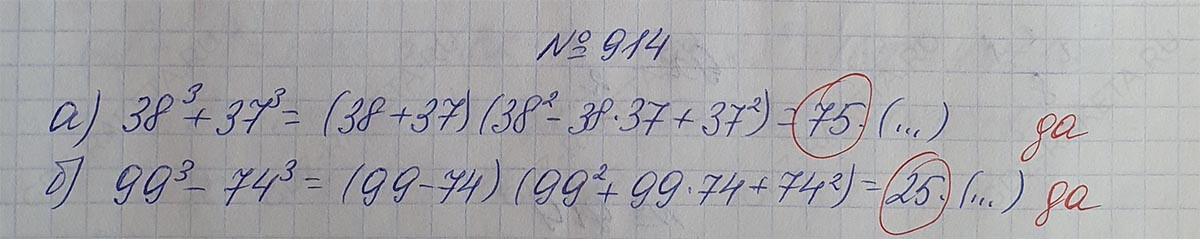 № 914
а) 38³ + 37³ = (38 + 37) (38² - 38·37 + 37²) = 75·(...) да
б) 99³ - 74³ = (99 - 74) (99² + 99·74 + 74²) = 25·(...) да